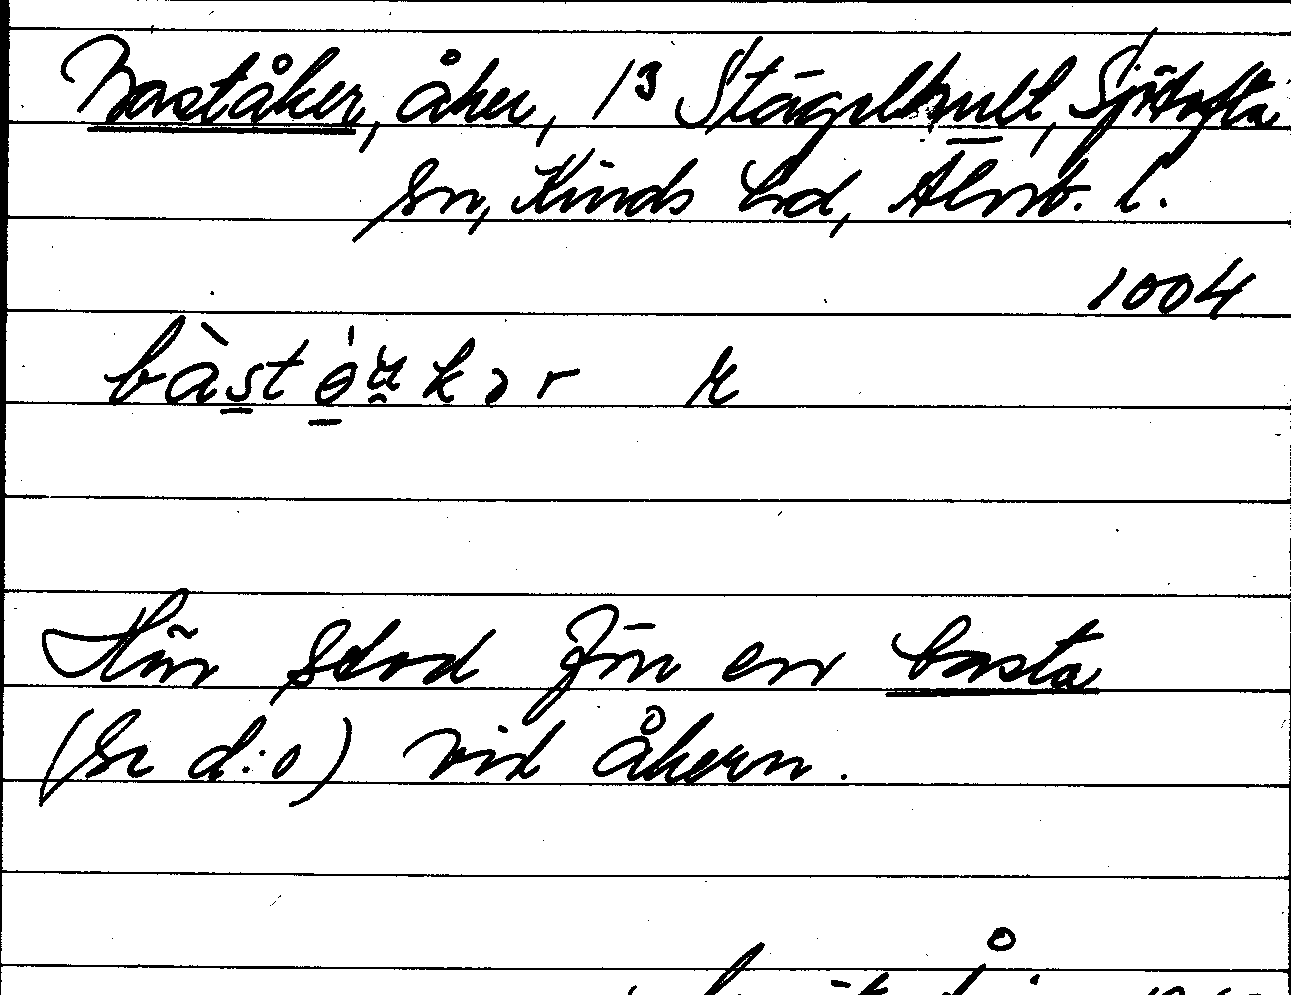 Baståker, åker, 1³ Stägelhult, Sjötofta
sn, Kinds hd, Älvsb. l.
1004
bàst ó̱u̯kər r
Här stod förr en basta
(se d:o) vid åkern.